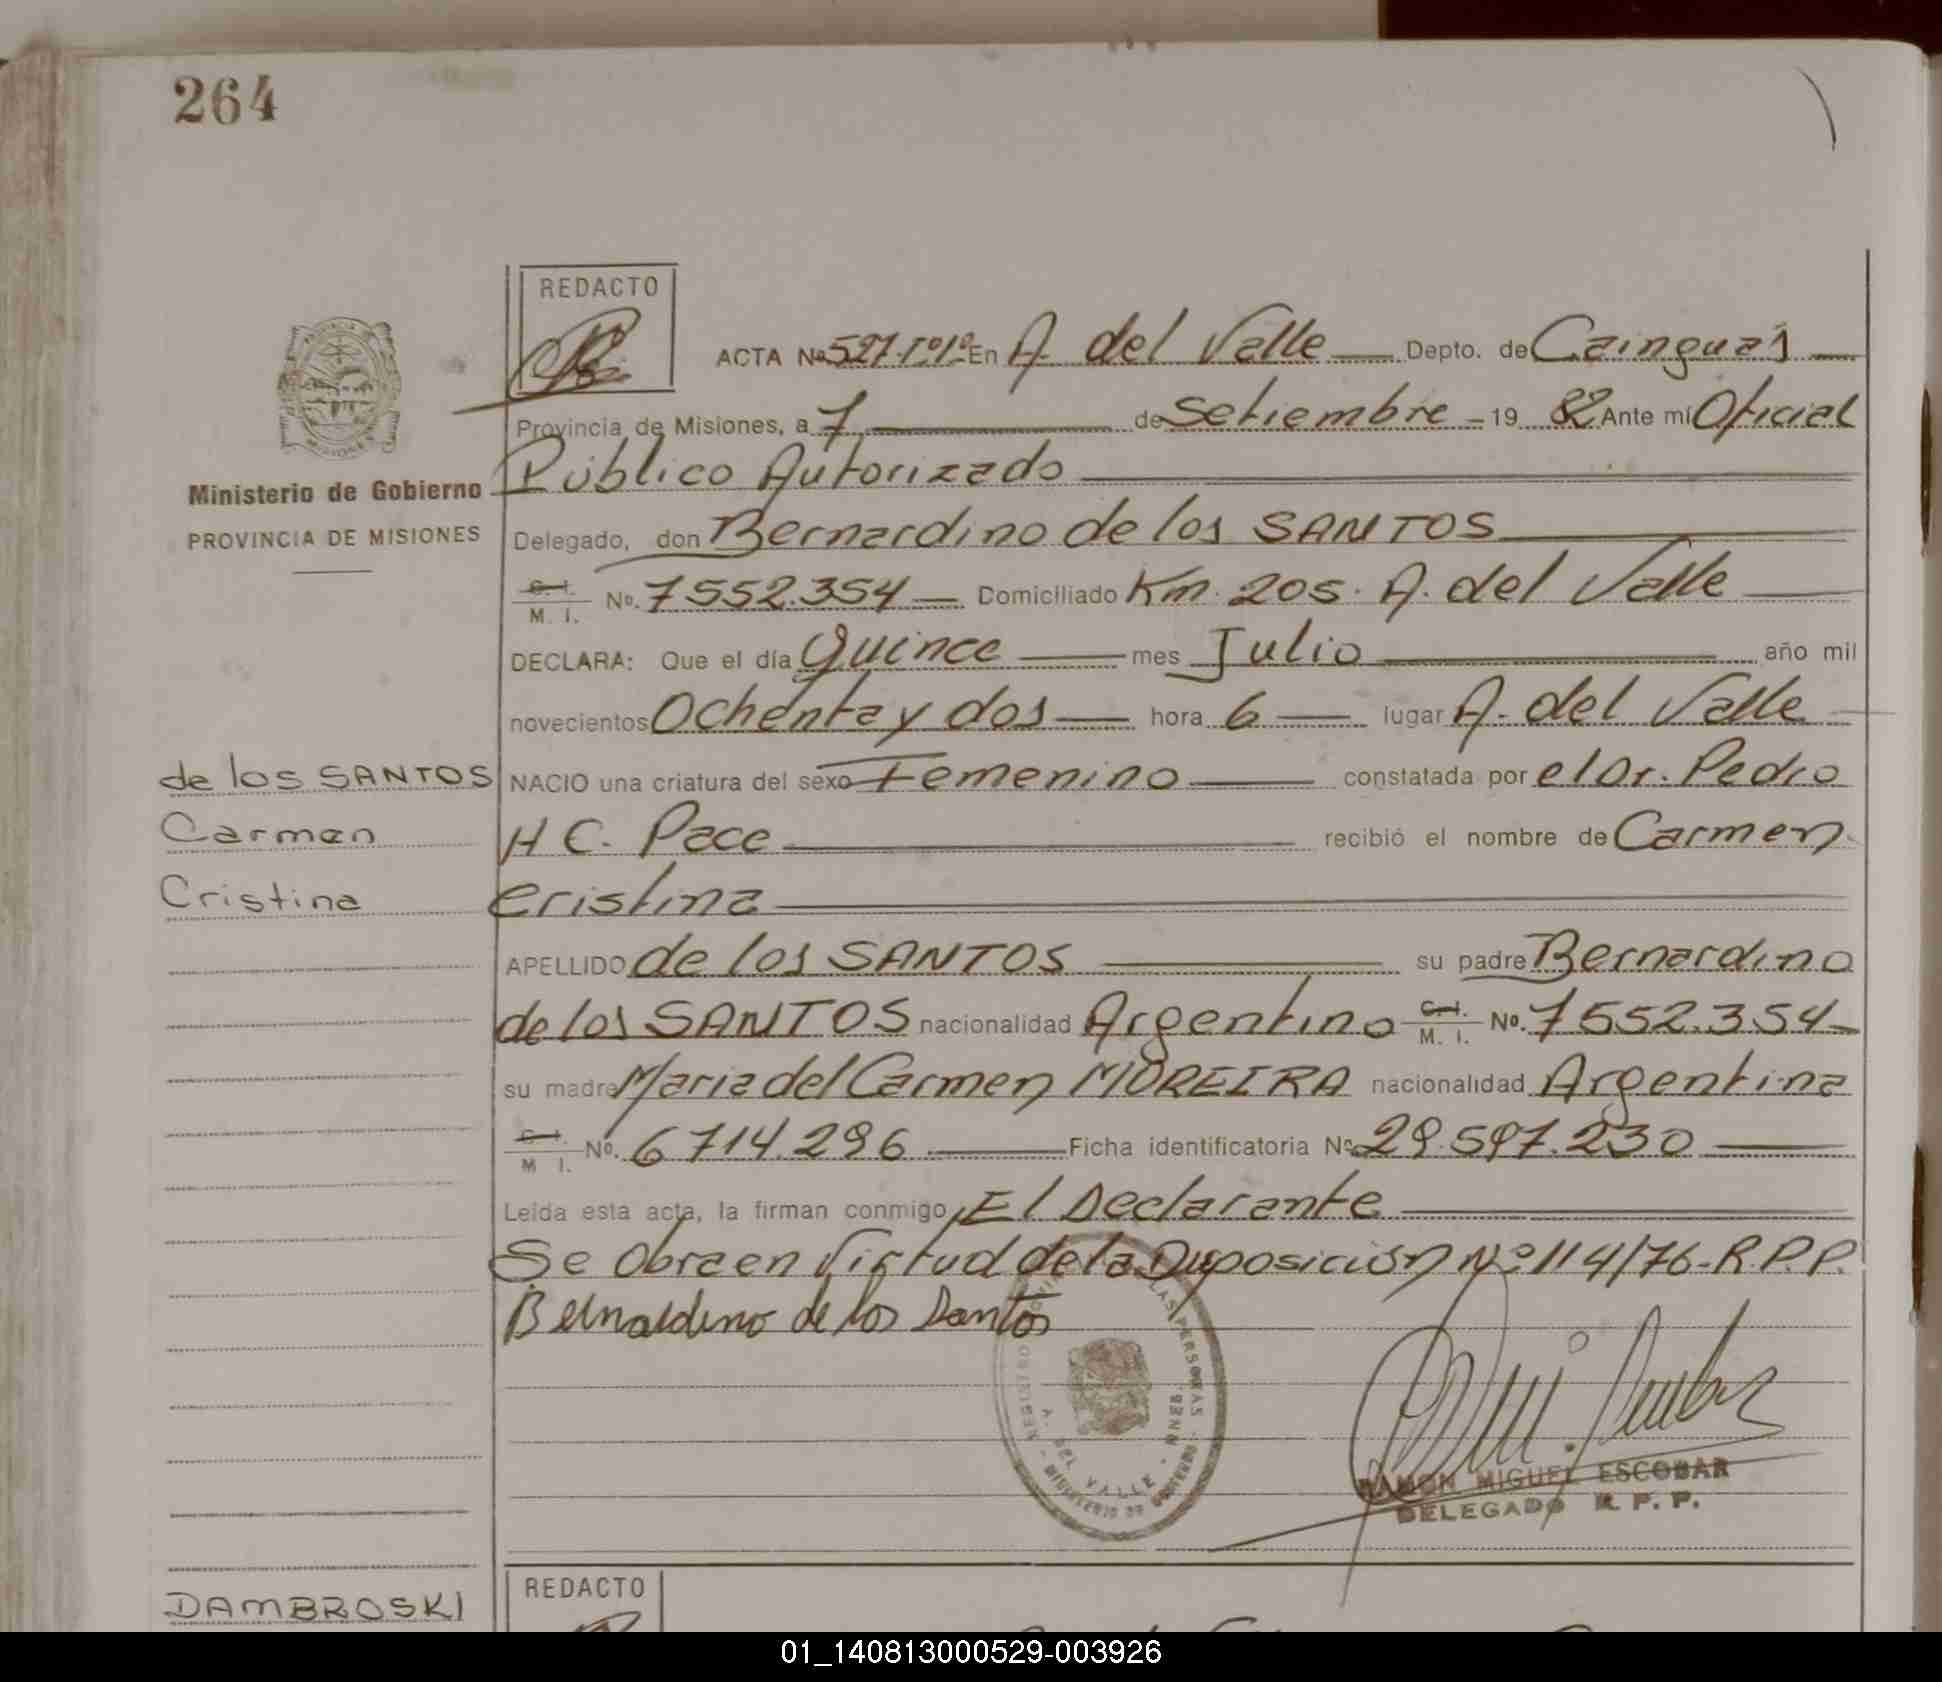 264
REDACTO
ACTA Nº 527.Tº1º En A. del Valle Depto. de Cainguás
Provincia de Misiones, a 7 de Setiembre - 19 82 Ante mí Oficial
Público Autorizado
Ministerio de Gobierno
PROVINCIA DE MISIONES
Delegado, don Bernardino de los SANTOS
C. I. M. I. No. 7552.354 Domiciliado Km. 205. A. del Valle
DECLARA: Que el día Quince mes Julio año mil
novecientos Ochenta y dos hora 6 lugar A. del Valle
de los SANTOS
Carmen
Cristina
NACIO una criatura del sexo Femenino constatada por el Dr. Pedro
H C. Pace recibió el nombre de Carmen
Cristina
APELLIDO de los SANTOS su padre Bernardino
de los SANTOS nacionalidad Argentino C. I. M. I. No. 7552.354
su madre Maria del Carmen MOREIRA nacionalidad Argentina
C. I. M I. No. 6714.296 Ficha identificatoria Nº 29.597.230
Leída esta acta, la firman conmigo, El Declarante
Se Obra en Virtud de la Disposición Nº 114/76-R.P.P.
Bernaldino de los Santos
REGISTRO LAS PERSONAS
A. DEL VALLE
MINISTERIO DE GOBIERNO
RAMON MIGUEL ESCOBAR
DELEGADO R. P. P.
REDACTO
DAMBROSKI
01_140813000529-003926